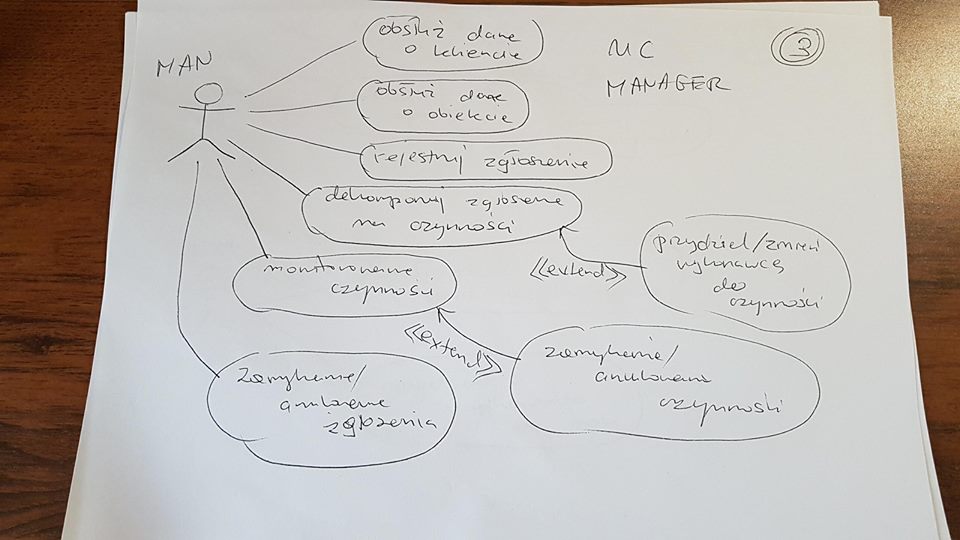 MAN
obsłuż dane
o kliencie
UC
MANAGER
3
obsłuż dane
o obiekcie
rejestruj zgłoszenie
dekomponuj zgłoszenie
na czynności
przydziel/zmień
wykonawcę
do
czynności
<<extend>>
monitorowanie
czynności
<<extend>>
zamykanie/
anulowanie
czynności
zamykanie/
anulowanie
zgłoszenia